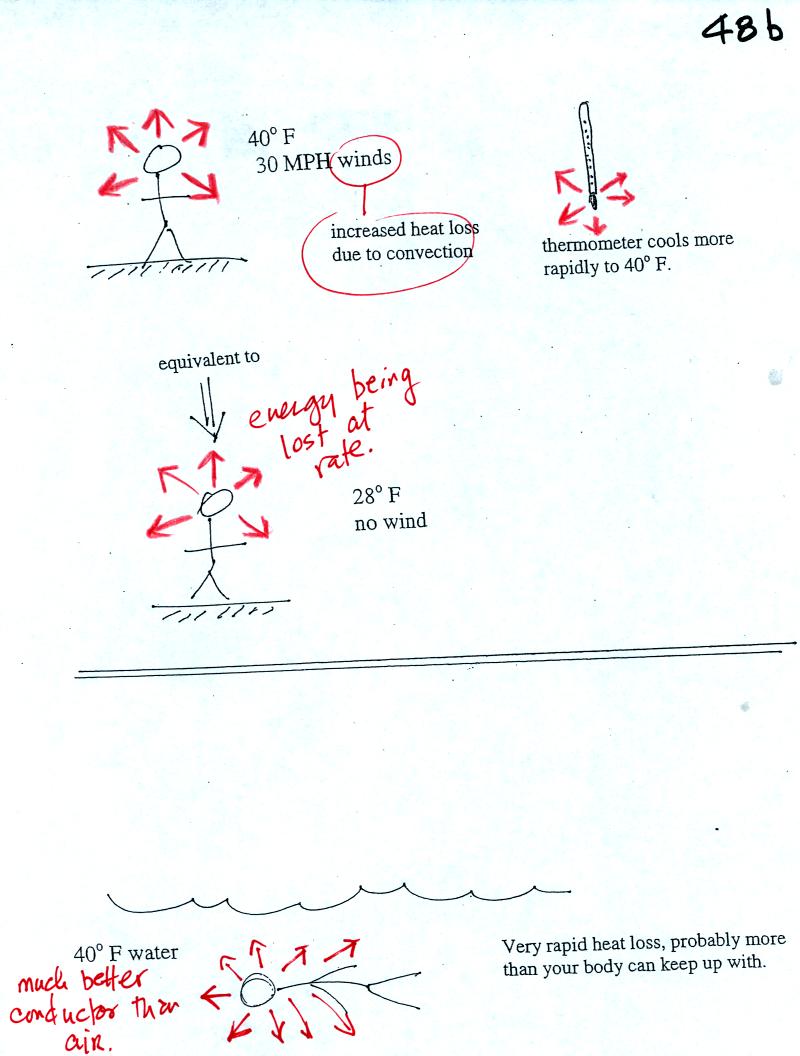 48b
40° F
30 MPH winds
increased heat loss
due to convection
thermometer cools more
rapidly to 40° F.
equivalent to
energy being
lost at
rate.
28° F
no wind
40° F water
much better
conductor than
air.
Very rapid heat loss, probably more
than your body can keep up with.